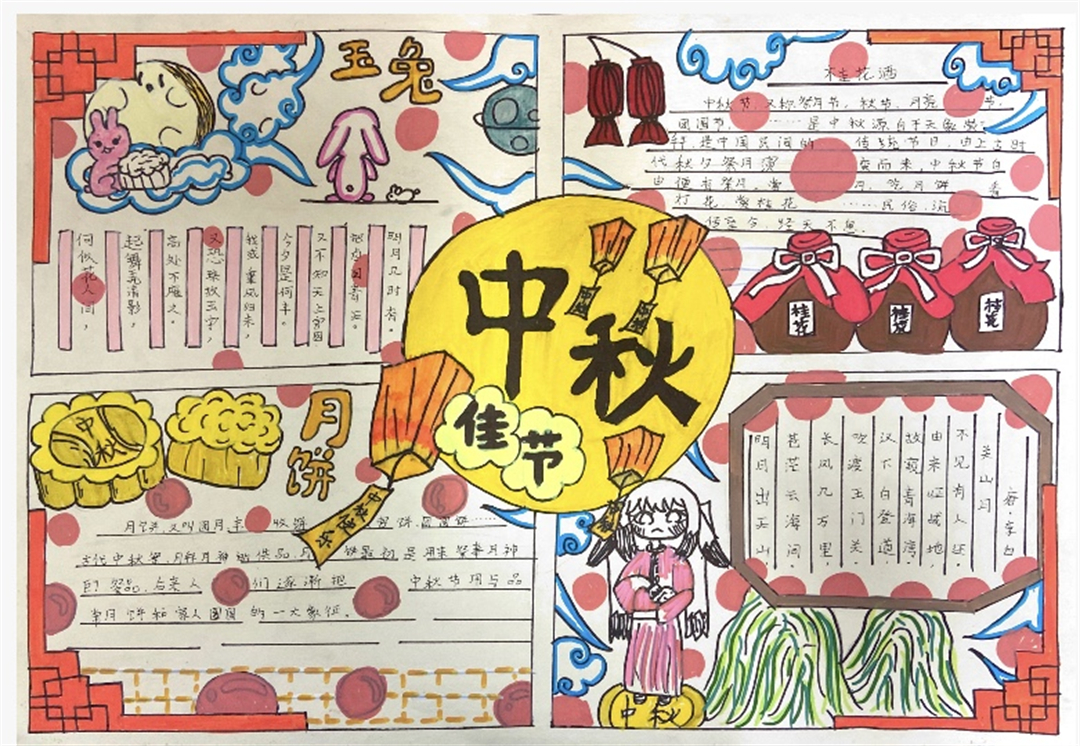 玉兔
明月几时有。
把酒问青天。
又不知天上宫阙
今夕是何年。
我欲乘风归来,
又恐琼玖玉宇,
高处不胜寒
起舞弄清影,
何似在人间,
桂花酒
中秋节,又称祭月节,秋节,月亮 节.
团圆节. …… 是中秋源自于天象崇
拜,是中国民间的 传统节日,由上古时
代秋夕祭月演 变而来,中秋节自
由便有祭月,赏 月,吃月饼 看
灯花,赏桂花 ……民俗,流
传至今,经久不息.
桂花
桂花
桂花
中秋
佳节
中秋快乐
月饼
中秋
月饼又叫团月, 收饼 团圆饼……
古代中秋祭 月拜月神 供品,月饼最初是用来祭奉月神
的 祭品,后来人 们逐渐把 中秋节用与品
尝月饼和家人团圆 的一大象征。
关山月
唐·李白
不见有人还
由来征战地
胡窥青海湾
汉下白登道
吹渡玉门关
长风几万里
苍茫云海间
明月出天山
中秋